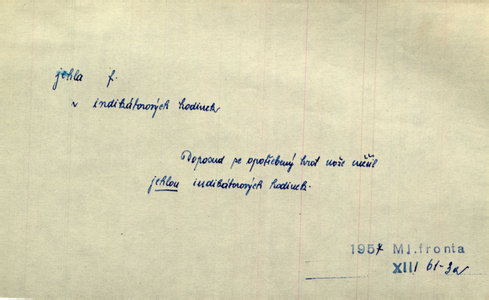 jehla f.
v indikátorových hodinek
Doposud se opotřebený hrot nože měřil
jehlou indikátorových hodinek.
1957 Ml.fronta
XIII 61-3a